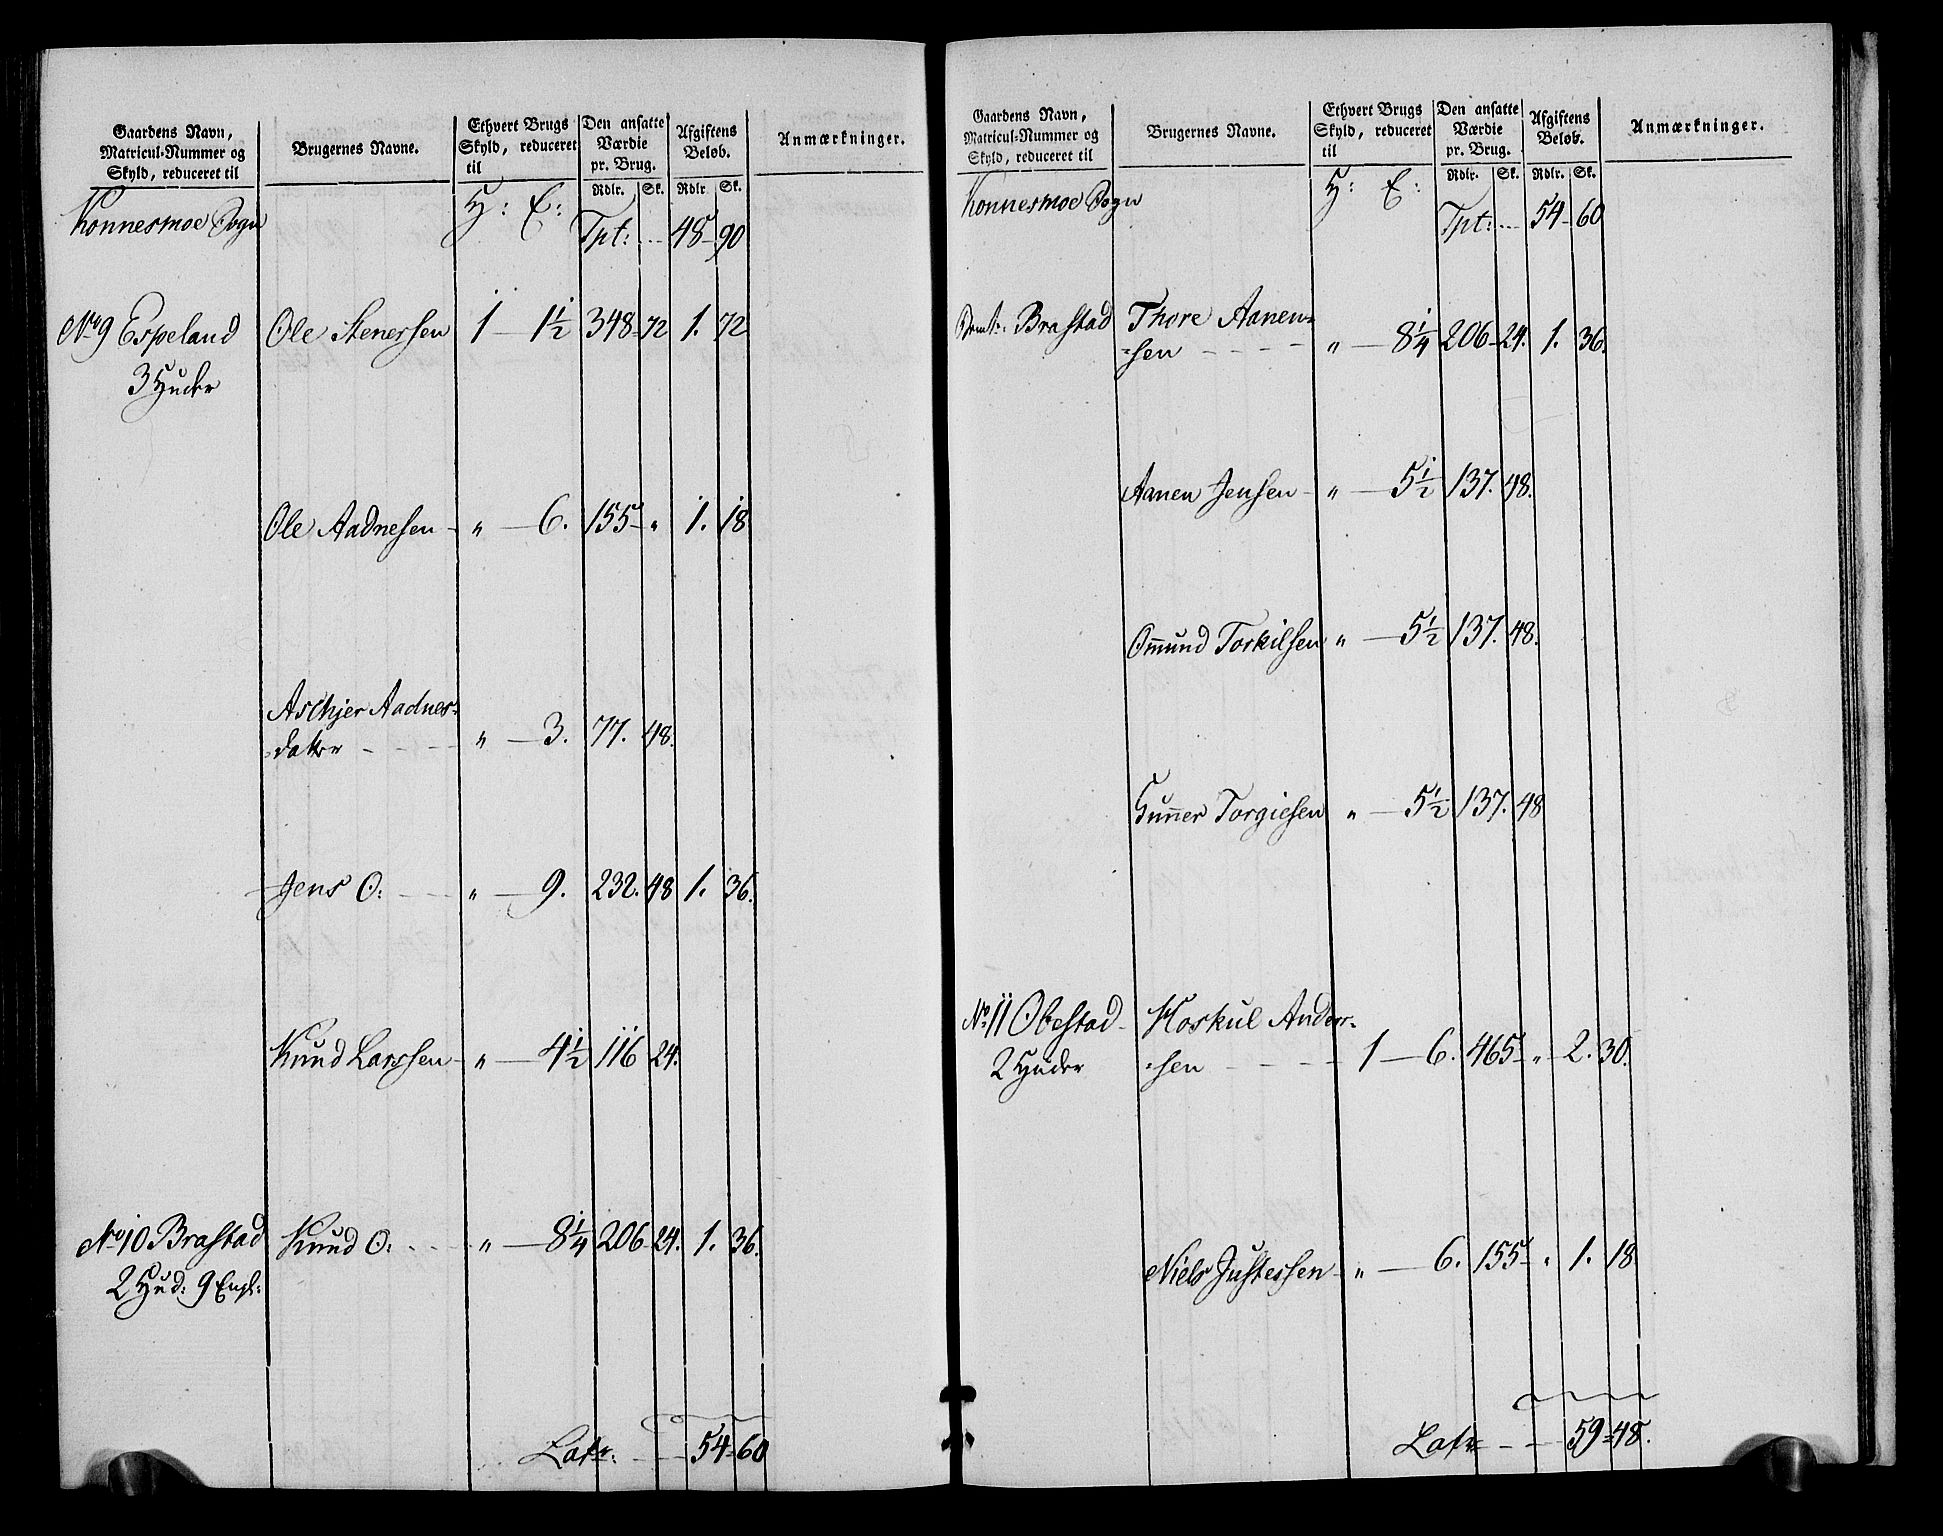 Gaardens Navn,
Matricul-Nummer og
Skyld, reduceret til
Brugernes Navne.
Ethvert Brugs
Skyld, reduceret
til
Den ansatte
Værdie
pr. Brug.
Afgiftens
Beløb.
Anmærkninger.
Rdlr. Sk. Rdlr. Sk.
Konnesmoe Sogn H: E: Tpt: 48 90
No 9 Espeland Ole Stenersen 1 1½ 348 72 1. 72
3 Huder
Ole Aadnesen „ 6. 155 „ 1. 18
Aschjer Aadnes-
datter „ 3. 77. 48.
Jens O: „ 9. 232. 48 1. 36.
Knud Larssen „ 4½ 116 24.
No 10 Brastad Knud O: „ 8¼ 206 24. 1. 36.
2 Hud: 9 Engl:
Latr: 54 60
Gaardens Navn,
Matricul-Nummer og
Skyld, reduceret til
Brugernes Navne.
Ethvert Brugs
Skyld, reduceret
til
Den ansatte
Værdie
pr. Brug.
Afgiftens
Beløb.
Anmærkninger.
Rdlr. Sk. Rdlr. Sk.
Konnesmoe Sogn H: E: Tpt: 54 60
Brastad Thore Aanen-
sen „ 8¼ 206 24. 1. 36.
Aanen Jensen „ 5½ 137. 48.
Omund Torkilsen „ 5½ 137. 48.
Gunner Torgiesen „ 5½ 137. 48
No 11 Obestad Hoskul Anders-
2 Huder sen 1 6. 465 „ 2. 30.
Niels Justessen „ 6. 155 „ 1. 18
Latr 59 48.